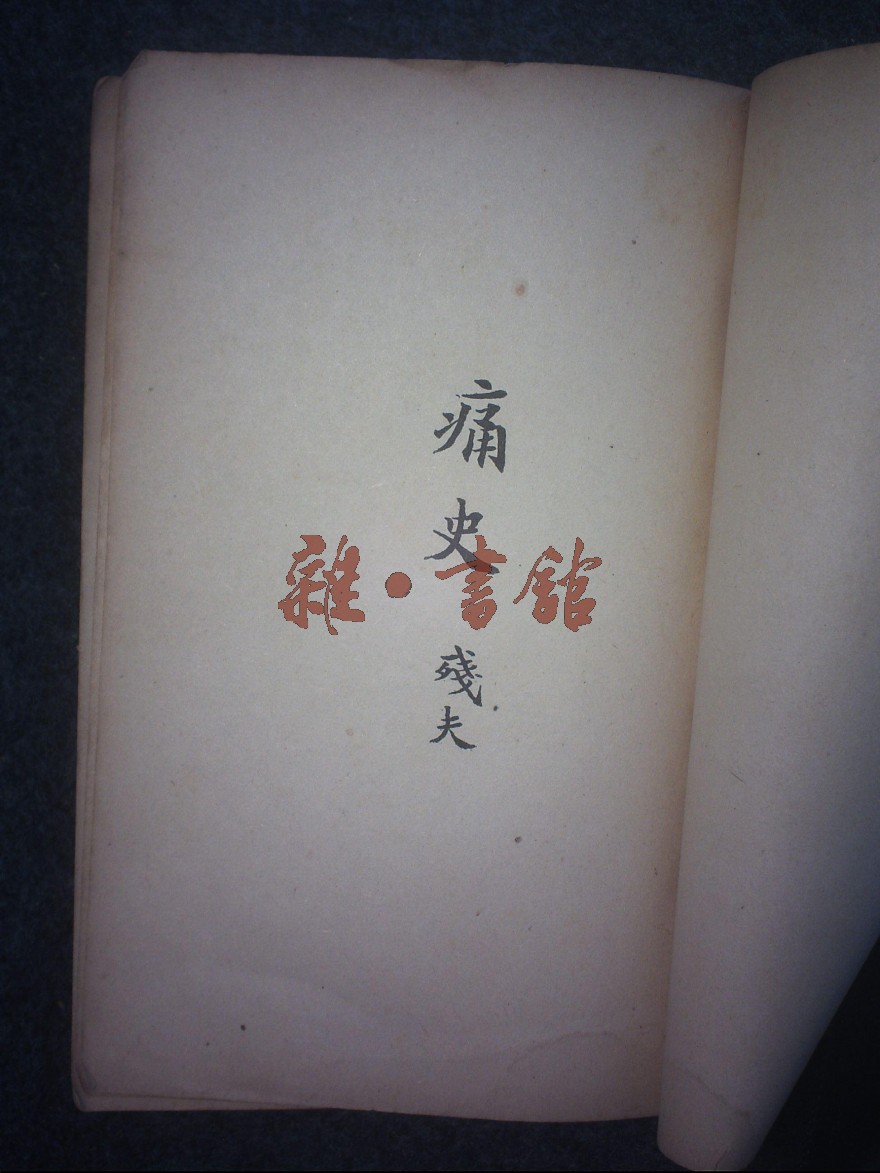 痛史
殘夫
雜·書館